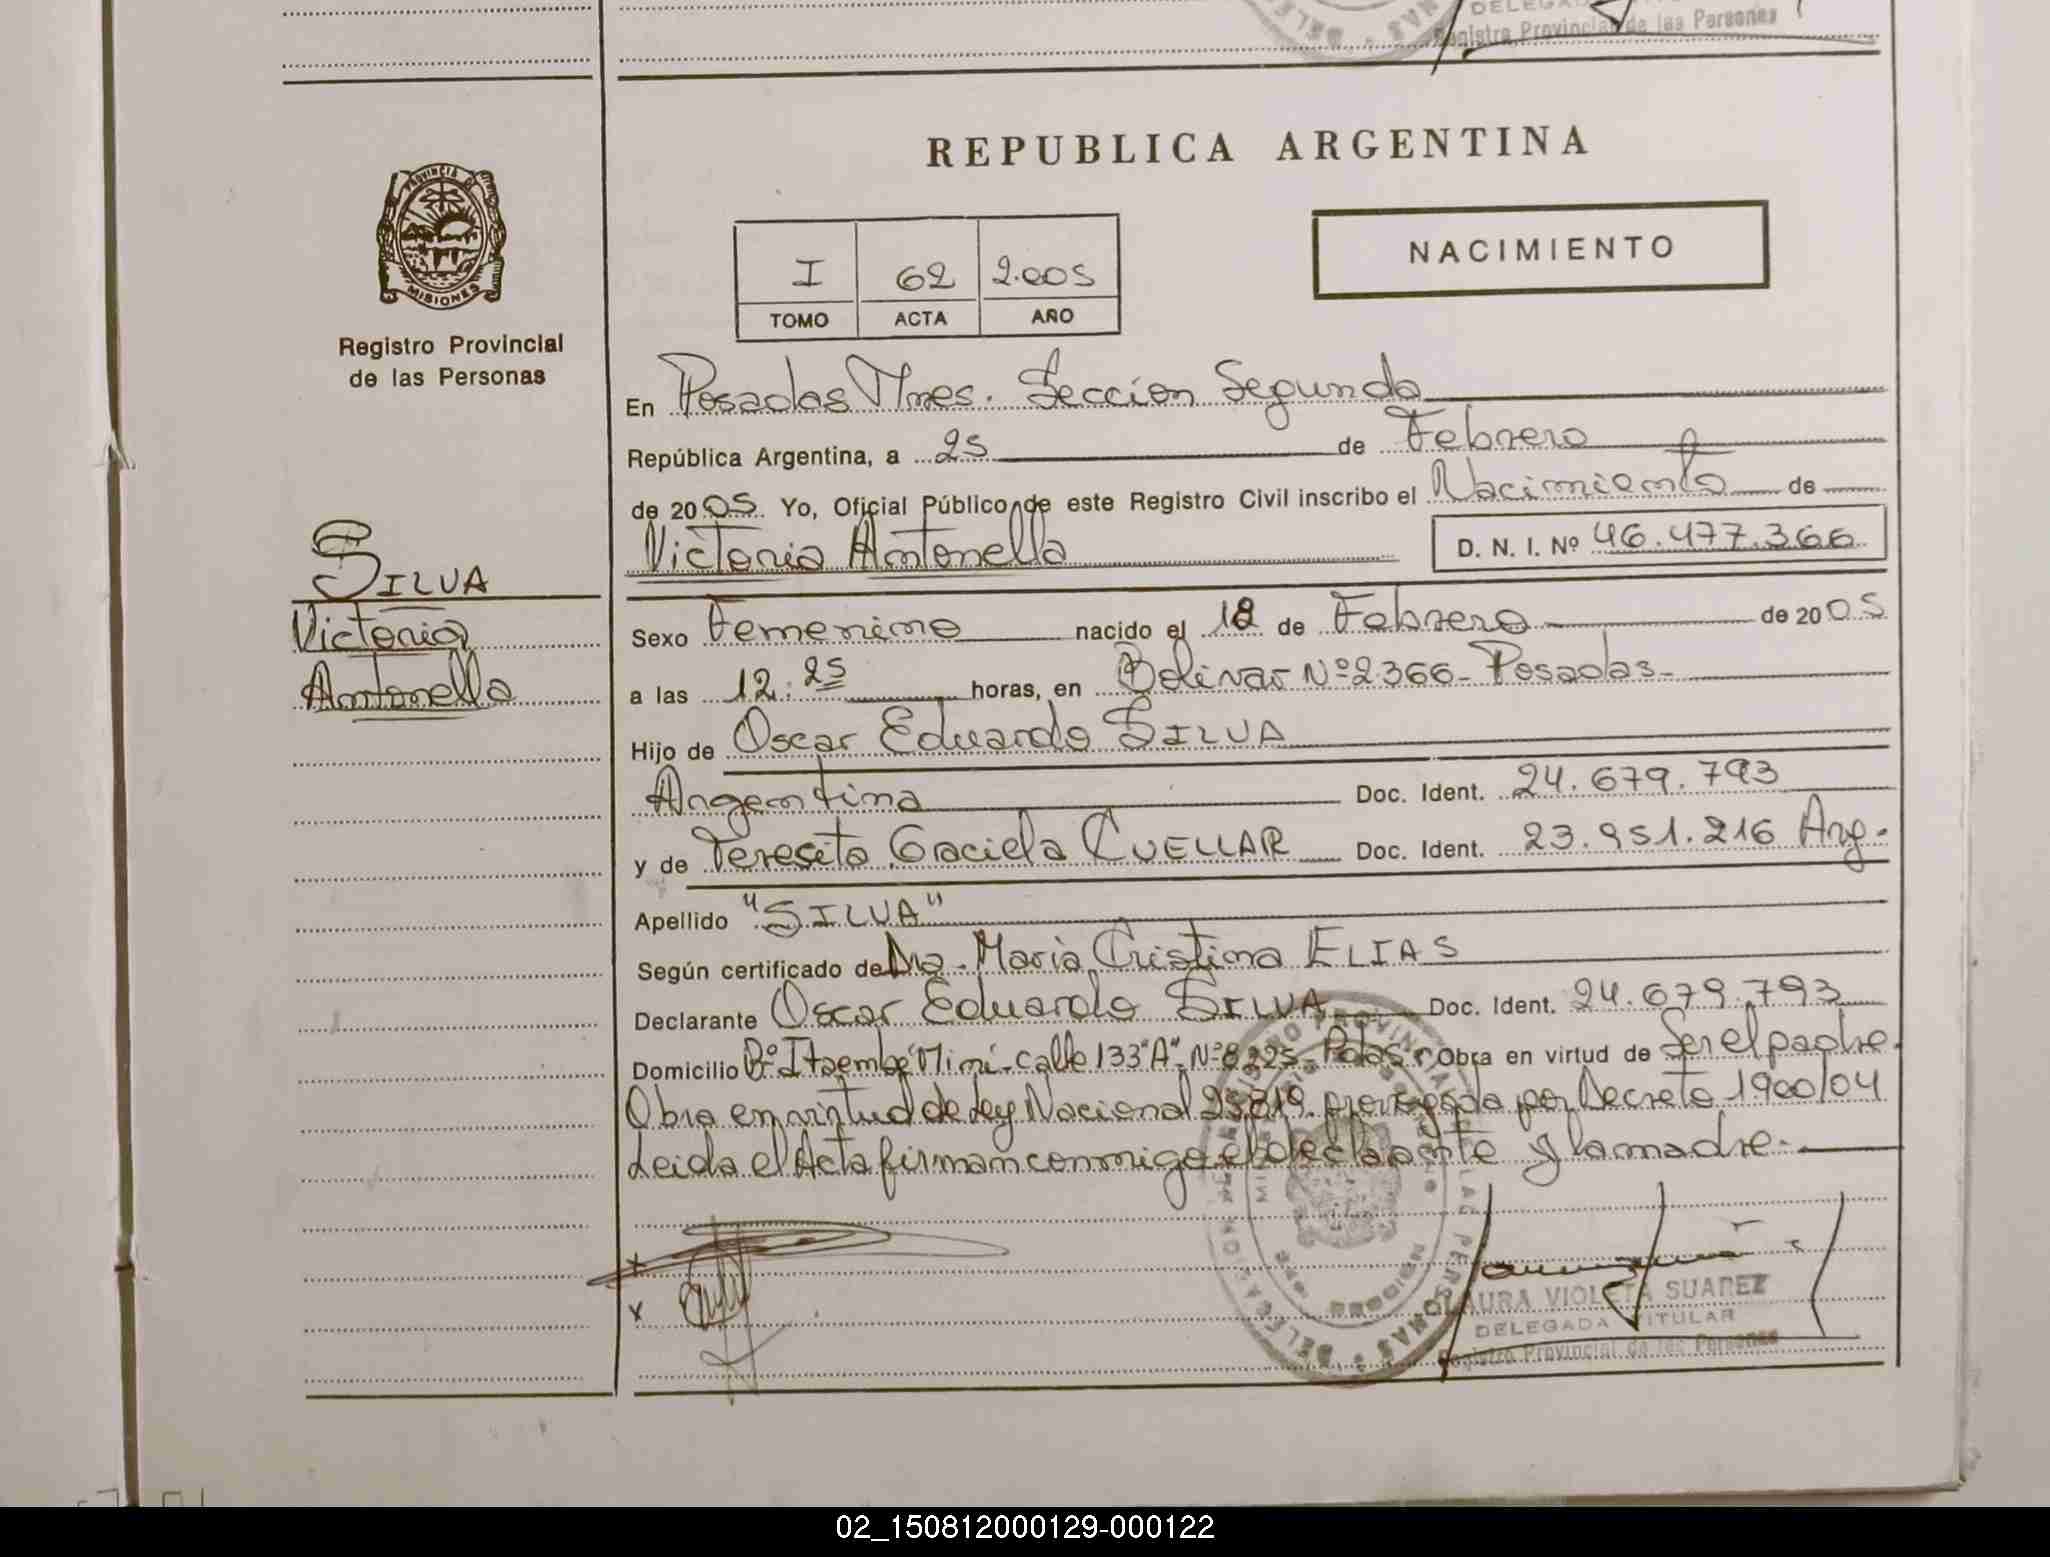 DELEGADA TITULAR
Registro Provincial de las Personas
REPUBLICA ARGENTINA
PROVINCIA DE
MISIONES
Registro Provincial
de las Personas
I 62 2.005
TOMO ACTA AÑO
NACIMIENTO
En Posadas Mnes. Seccion Segunda
República Argentina, a 25 de Febrero
de 2005 Yo, Oficial Público de este Registro Civil inscribo el Nacimiento de
Victoria Antonella D. N. I. Nº 46.477.366
SILVA
Victoria
Antonella
Sexo Femenino nacido el 18 de Febrero de 2005
a las 12:25 horas, en Bolivar Nº 2366 - Posadas -
Hijo de Oscar Eduardo SILVA
Argentina Doc. Ident. 24.679.793
y de Teresita Graciela CUELLAR Doc. Ident. 23.951.216 Arg.
Apellido "SILVA"
Según certificado de Dra. Maria Cristina ELIAS
Declarante Oscar Eduardo SILVA Doc. Ident. 24.679.793
Domicilio Bº Itaembé Mini - calle 133 "A" - Nº 8225 - Pdas. Obra en virtud de Ser el padre.
Obra en virtud de Ley Nacional 25819 prorrogada por Decreto 1900/04
Leida el Acta firman conmigo el declarante y la madre. -
x
x
LAURA VIOLETA SUAREZ
DELEGADA TITULAR
Registro Provincial de las Personas
02_150812000129-000122